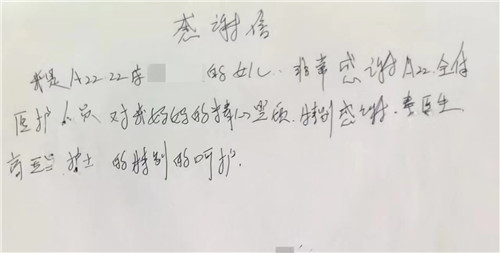 感谢信
我是A22 22床 的女儿. 非常感谢A22全体
医护人员对我妈妈的精心照顾. 特别感谢. 医生
护士 的特别的呵护.